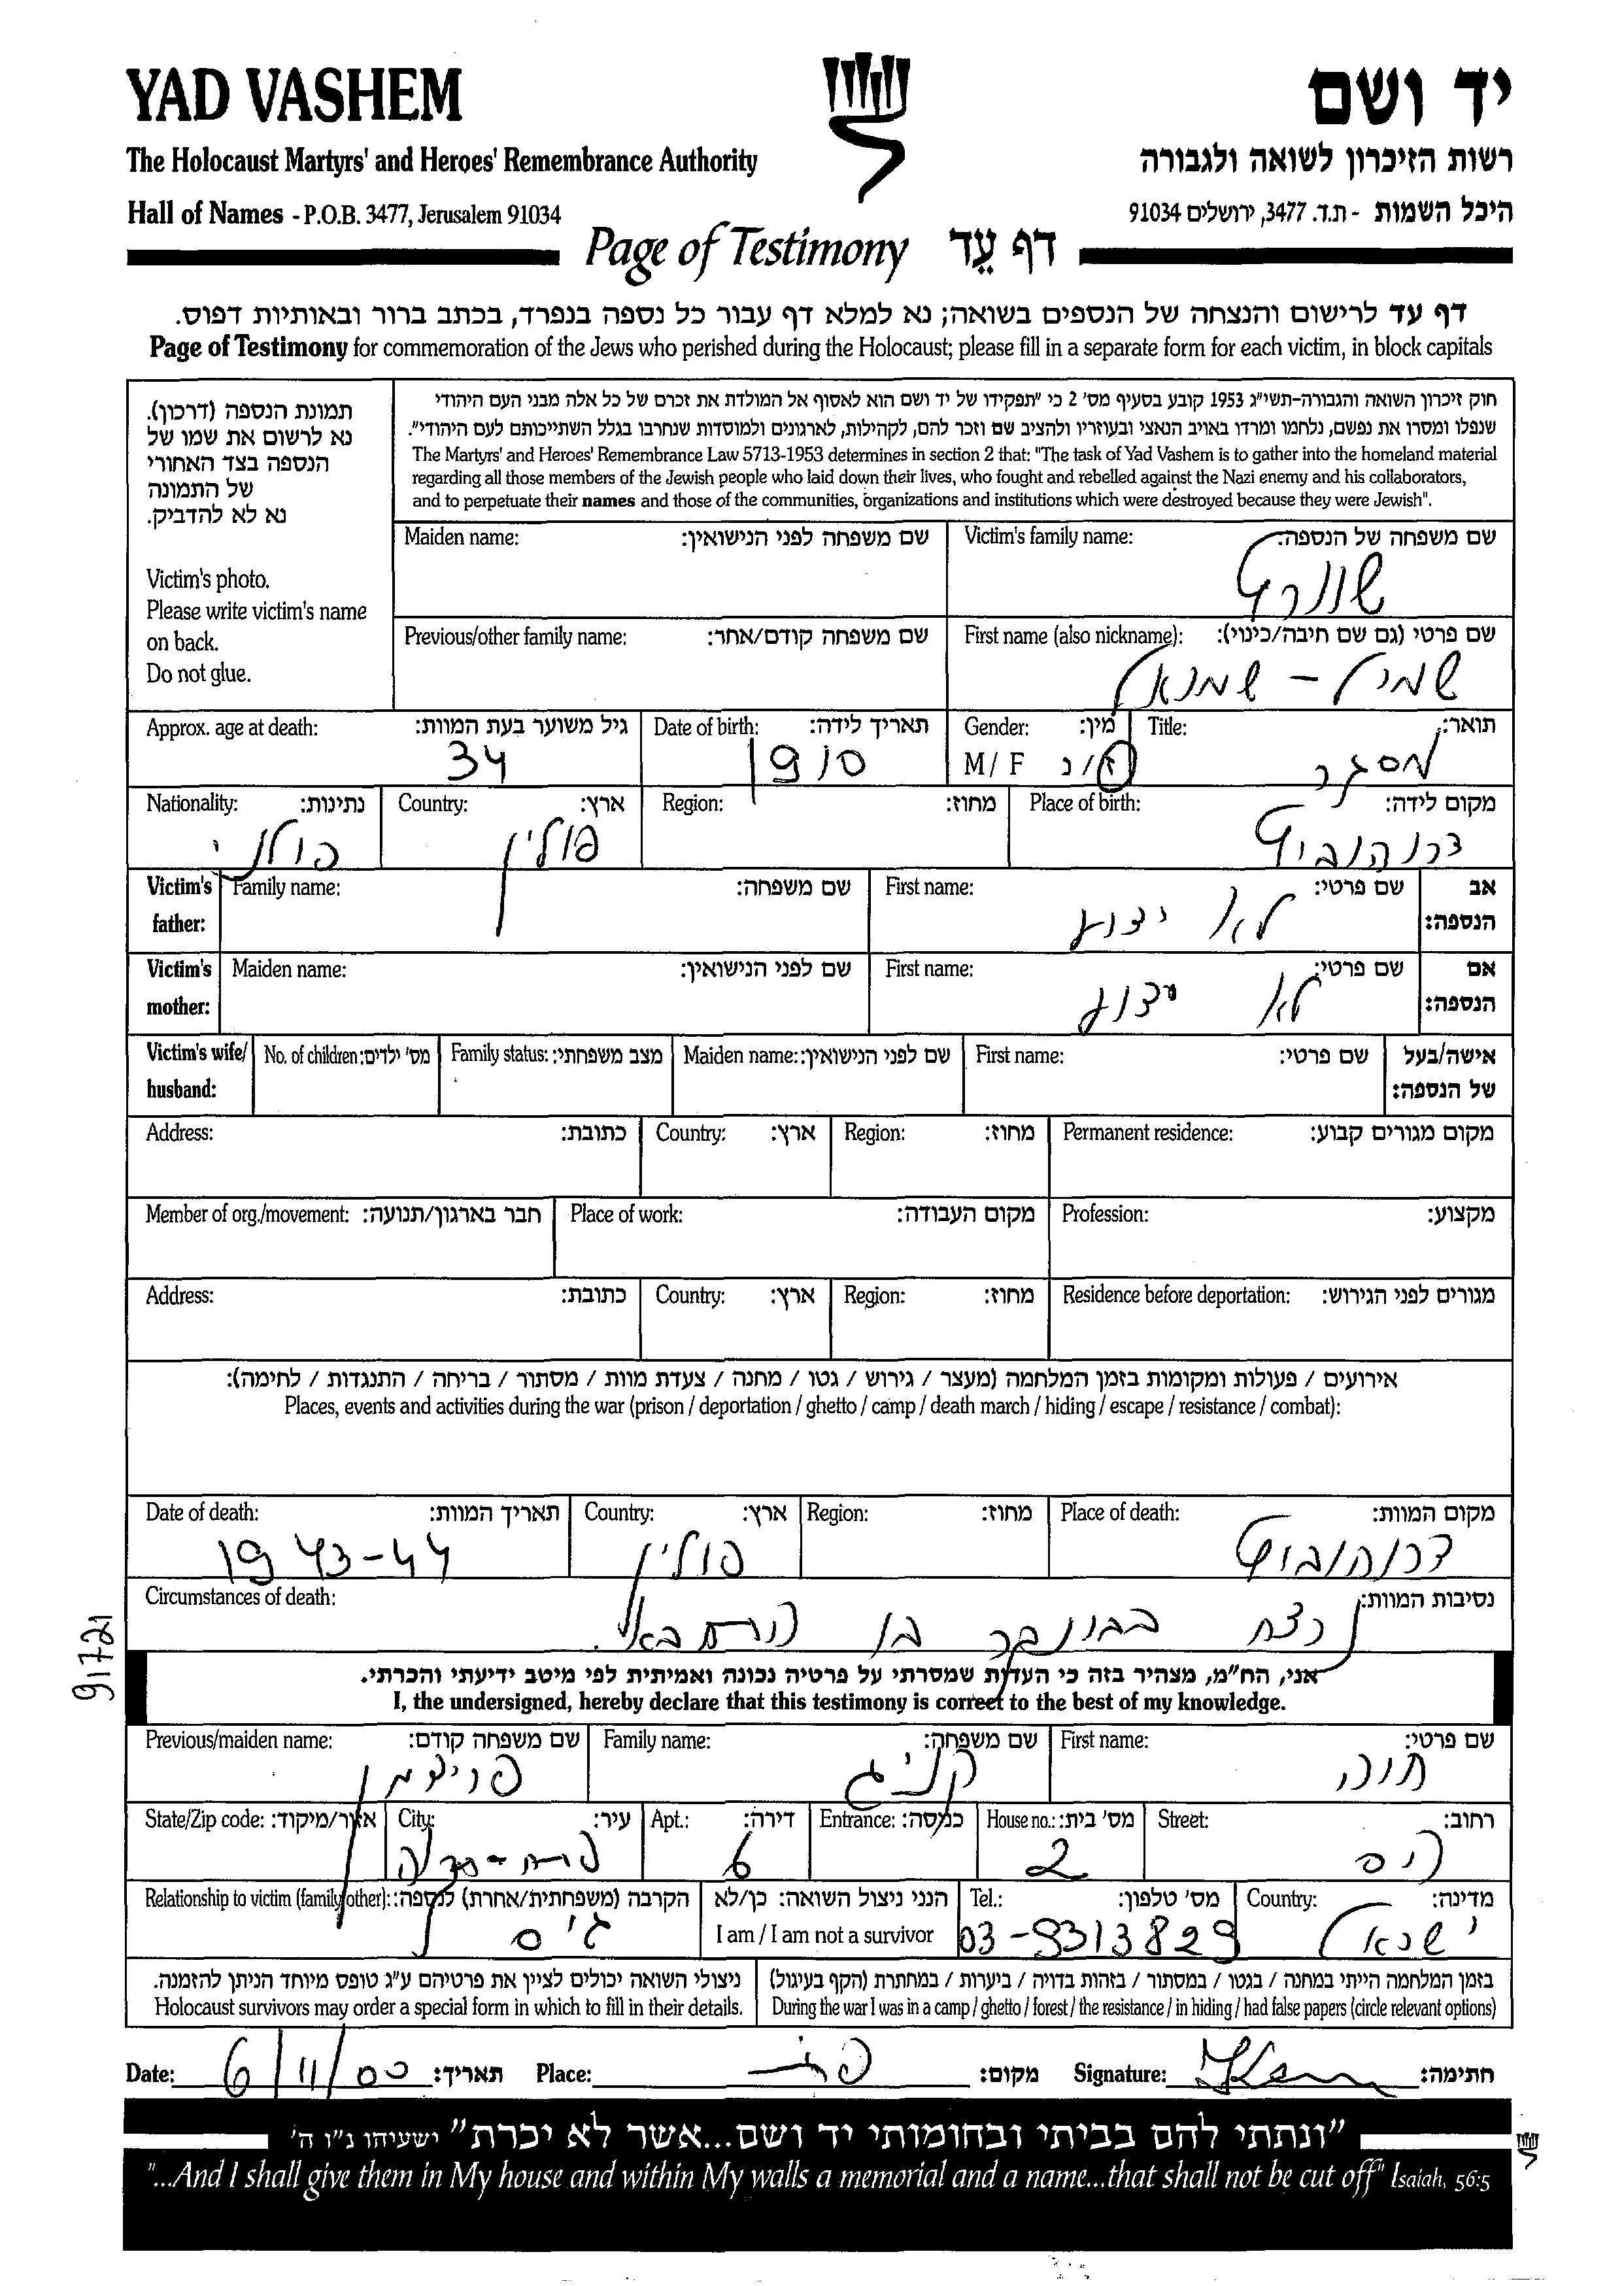 YAD VASHEM
יד ושם
The Holocaust Martyrs' and Heroes' Remembrance Authority
רשות הזיכרון לשואה ולגבורה
Hall of Names - P.O.B. 3477, Jerusalem 91034
היכל השמות - ת.ד. 3477, ירושלים 91034
Page of Testimony דף עֵד
דף עד לרישום והנצחה של הנספים בשואה; נא למלא דף עבור כל נספה בנפרד, בכתב ברור ובאותיות דפוס.
Page of Testimony for commemoration of the Jews who perished during the Holocaust; please fill in a separate form for each victim, in block capitals
תמונת הנספה (דרכון).
נא לרשום את שמו של
הנספה בצד האחורי
של התמונה
נא לא להדביק.
Victim's photo.
Please write victim's name
on back.
Do not glue.
חוק זיכרון השואה והגבורה-תשי"ג 1953 קובע בסעיף מס' 2 כי "תפקידו של יד ושם הוא לאסוף אל המולדת את זכרם של כל אלה מבני העם היהודי
שנפלו ומסרו את נפשם, נלחמו ומרדו באויב הנאצי ובעוזריו ולהציב שם וזכר להם, לקהילות, לארגונים ולמוסדות שנחרבו בגלל השתייכותם לעם היהודי".
The Martyrs' and Heroes' Remembrance Law 5713-1953 determines in section 2 that: "The task of Yad Vashem is to gather into the homeland material
regarding all those members of the Jewish people who laid down their lives, who fought and rebelled against the Nazi enemy and his collaborators,
and to perpetuate their names and those of the communities, organizations and institutions which were destroyed because they were Jewish".
Maiden name: שם משפחה לפני הנישואין: Victim's family name: שם משפחה של הנספה:
שוורץ
Previous/other family name: שם משפחה קודם/אחר: First name (also nickname): שם פרטי (גם שם חיבה/כינוי):
שמיל - שמואל
Approx. age at death: גיל משוער בעת המוות: Date of birth: תאריך לידה: Gender: מין: Title: תואר:
34 1910 M/F ז/נ מסגר
Nationality: נתינות: Country: ארץ: Region: מחוז: Place of birth: מקום לידה:
פולני פולין דרוהוביץ
Victim's father: Family name: שם משפחה: First name: שם פרטי: אב הנספה:
לא ידוע
Victim's mother: Maiden name: שם לפני הנישואין: First name: שם פרטי: אם הנספה:
לא ידוע
Victim's wife/husband: No. of children: מס' ילדים: Family status: מצב משפחתי: Maiden name: שם לפני הנישואין: First name: שם פרטי: אישה/בעל של הנספה:
Address: כתובת: Country: ארץ: Region: מחוז: Permanent residence: מקום מגורים קבוע:
Member of org./movement: חבר בארגון/תנועה: Place of work: מקום העבודה: Profession: מקצוע:
Address: כתובת: Country: ארץ: Region: מחוז: Residence before deportation: מגורים לפני הגירוש:
אירועים / פעולות ומקומות בזמן המלחמה (מעצר / גירוש / גטו / מחנה / צעדת מוות / מסתור / בריחה / התנגדות / לחימה):
Places, events and activities during the war (prison / deportation / ghetto / camp / death march / hiding / escape / resistance / combat):
Date of death: תאריך המוות: Country: ארץ: Region: מחוז: Place of death: מקום המוות:
1943-44 פולין דרוהוביץ
Circumstances of death: נסיבות המוות:
נרצח בבונקר
91721
אני, הח"מ, מצהיר בזה כי העדות שמסרתי על פרטיה נכונה ואמיתית לפי מיטב ידיעתי והכרתי.
I, the undersigned, hereby declare that this testimony is correct to the best of my knowledge.
Previous/maiden name: שם משפחה קודם: Family name: שם משפחה: First name: שם פרטי:
פרידמן קניג חוה
State/Zip code: אזור/מיקוד: City: עיר: Apt.: דירה: Entrance: כניסה: House no.: מס' בית: Street: רחוב:
פתח-תקוה 6 2
Relationship to victim (family/other): הקרבה (משפחתית/אחרת) לנספה: הנני ניצול השואה: כן/לא Tel.: מס' טלפון: Country: מדינה:
גיס I am / I am not a survivor 03-9313829 ישראל
ניצולי השואה יכולים לציין את פרטיהם ע"ג טופס מיוחד הניתן להזמנה.
Holocaust survivors may order a special form in which to fill in their details.
בזמן המלחמה הייתי במחנה / בגטו / במסתור / בזהות בדויה / ביערות / במחתרת (הקף בעיגול)
During the war I was in a camp / ghetto / forest / the resistance / in hiding / had false papers (circle relevant options)
Date: 6/11/00 תאריך: Place: מקום: Signature: חתימה:
"ונתתי להם בביתי ובחומותי יד ושם...אשר לא יכרת" ישעיהו נ"ו ה'
"...And I shall give them in My house and within My walls a memorial and a name...that shall not be cut off" Isaiah, 56:5